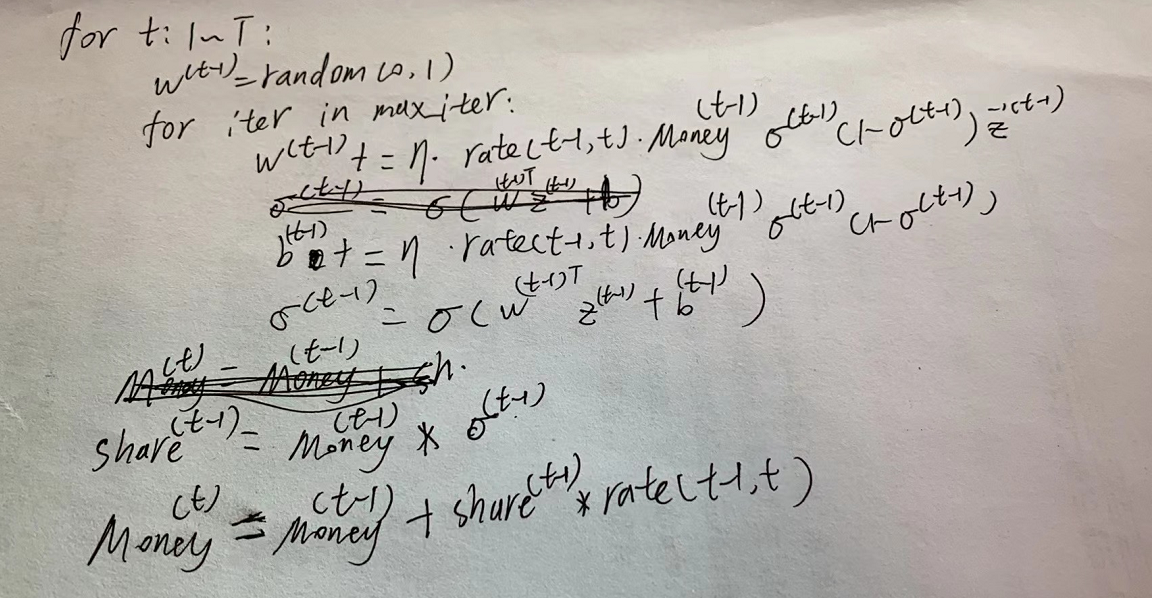 for t: 1~T:
w^(t-1) = random(0, 1)
for iter in max_iter:
w^(t-1) += η · rate(t-1, t) · Money^(t-1) σ^(t-1) (1-σ^(t-1)) z^(t-1)
σ^(t-1) = σ(w^(t-1)T z^(t-1) + b)
b^(t-1) += η · rate(t-1, t) · Money^(t-1) σ^(t-1) (1-σ^(t-1))
σ^(t-1) = σ(w^(t-1)T z^(t-1) + b^(t-1))
Money^(t) = Money^(t-1) + sh.
share^(t-1) = Money^(t-1) * σ^(t-1)
Money^(t) = Money^(t-1) + share^(t-1) * rate(t-1, t)